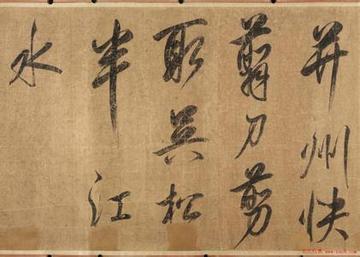 并州快
翦刀剪
取吳松
半江
水